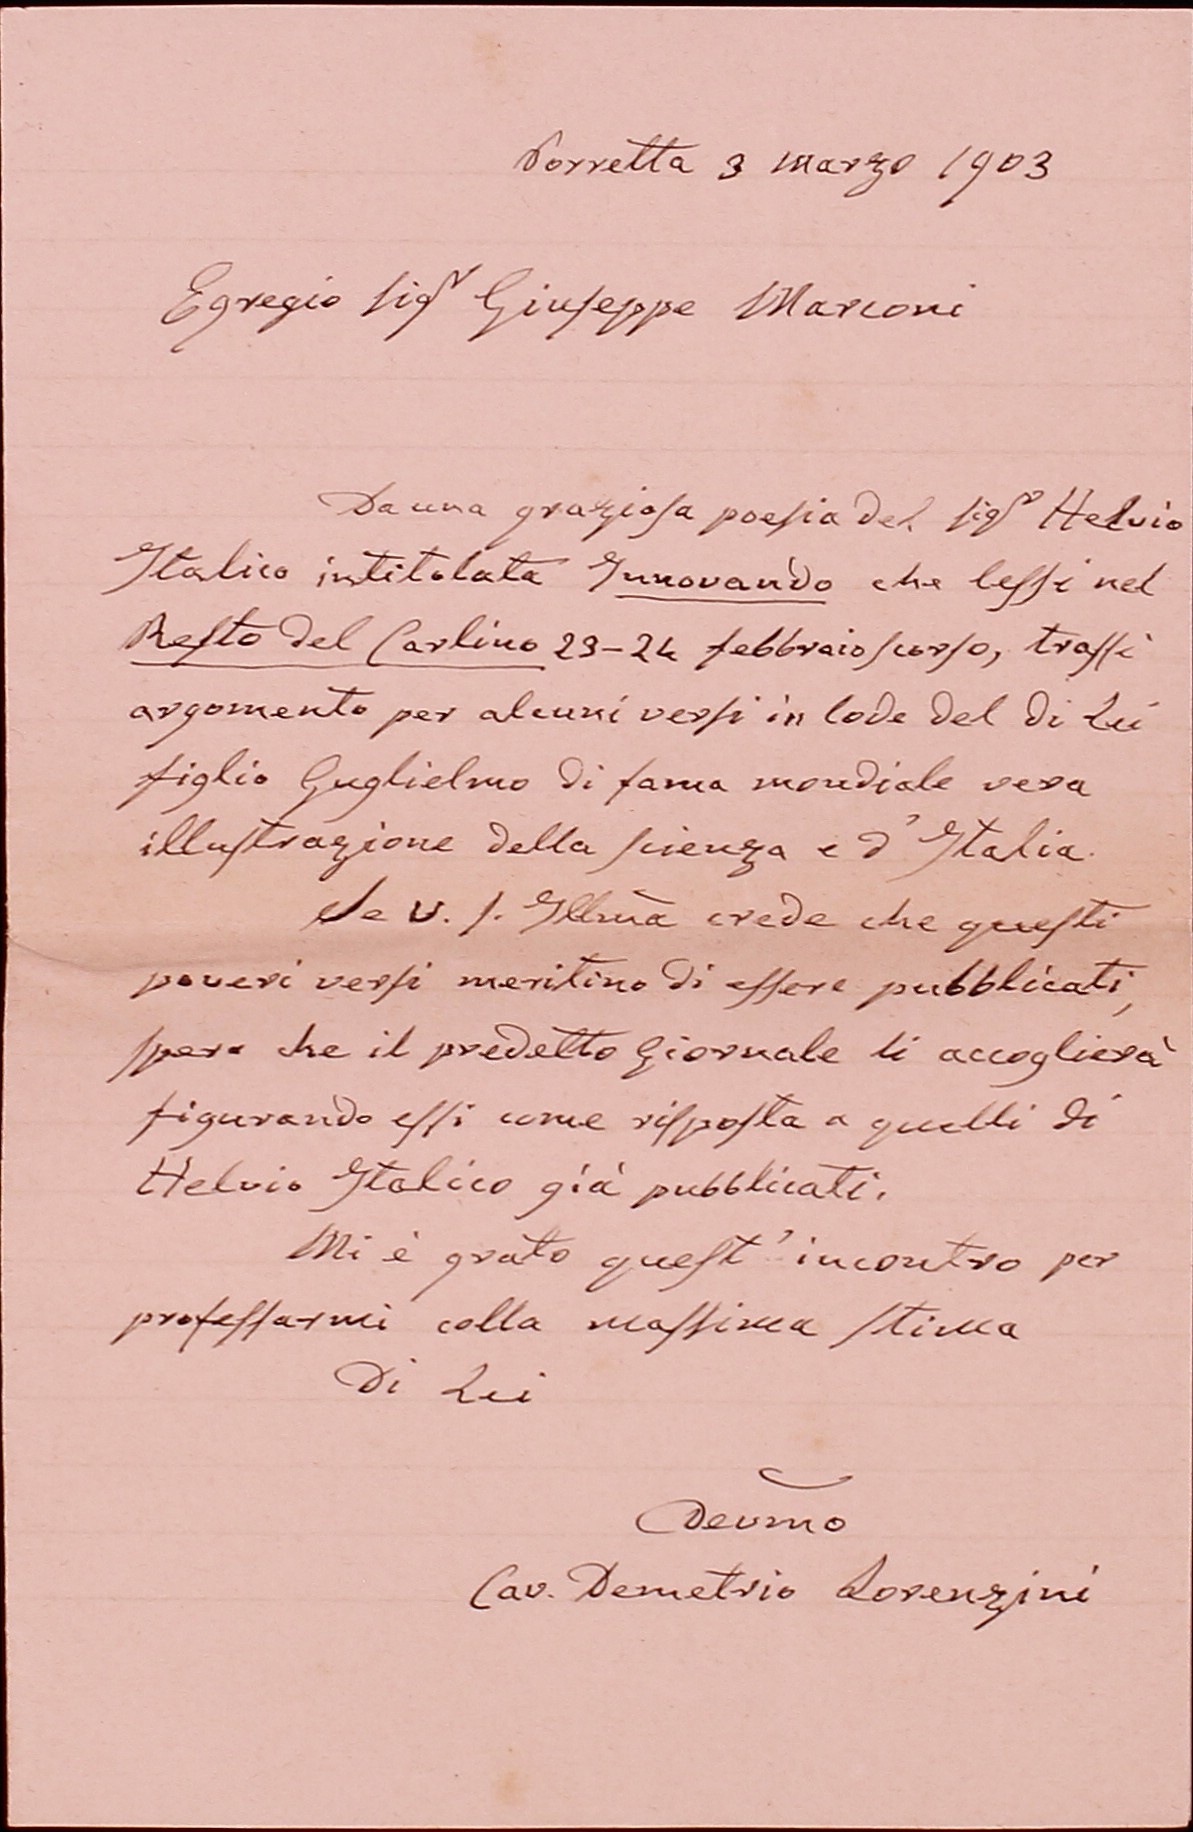 Porretta 3 Marzo 1903
Egregio Sigr Giuseppe Marconi
Da una graziosa poesia del Sigr Helvio
Italico intitolata Innovando che lessi nel
Resto del Carlino 23-24 febbraio scorso, trassi
argomento per alcuni versi in lode del di Lui
figlio Guglielmo di fama mondiale vera
illustrazione della scienza e d'Italia.
Se V. S. Illma crede che questi
poveri versi meritino di essere pubblicati,
spero che il predetto Giornale li accoglierà
figurando essi come risposta a quelli di
Helvio Italico già pubblicati.
Mi è grato quest'incontro per
professarmi colla massima stima
Di Lui
Devmo
Cav. Demetrio Lorenzini